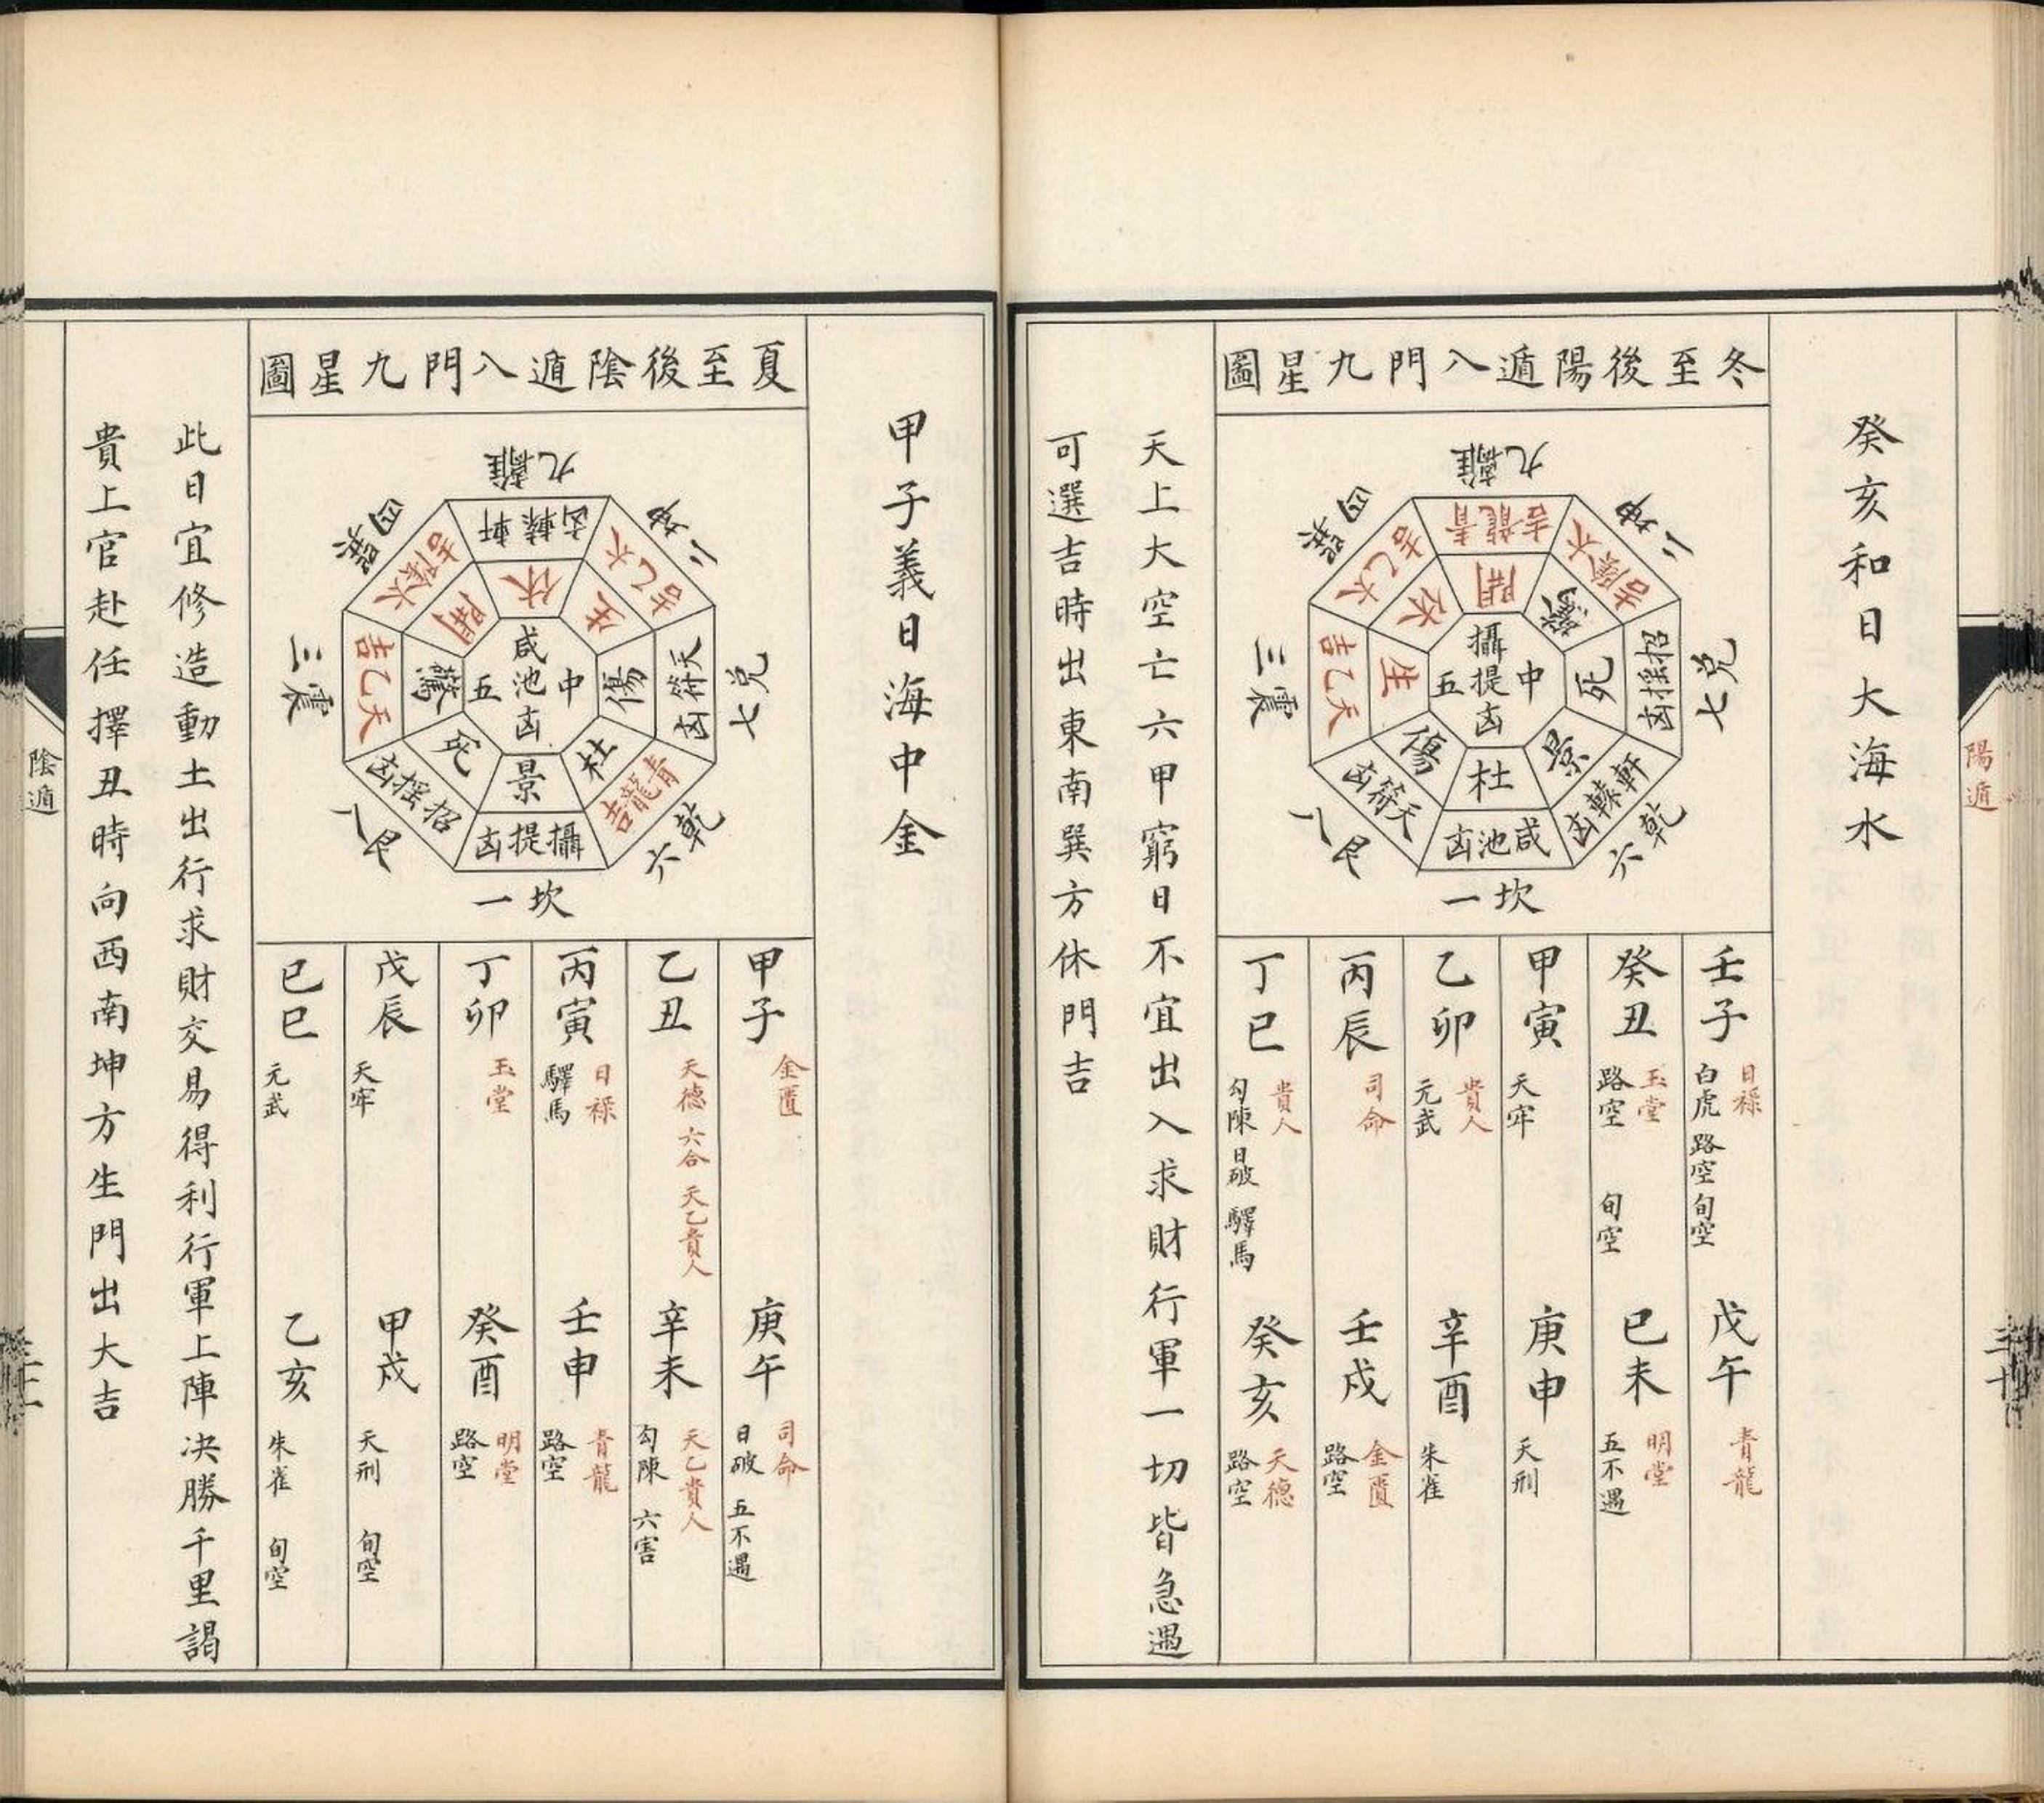 陽遁
三十
癸亥和日大海水
冬至後陽遁八門九星圖
九離
二坤
七兌
六乾
一坎
八艮
三震
四巽
青龍吉
太陰吉
招搖凶
軒轅凶
咸池凶
天符凶
天乙吉
太乙吉
開
驚
死
景
杜
傷
生
休
中
攝提凶
五
壬子 日祿 白虎 路空 旬空
戊午 青龍
癸丑 玉堂 路空 旬空
己未 明堂 五不遇
甲寅 天牢
庚申 天刑
乙卯 貴人 元武
辛酉 朱雀
丙辰 司命
壬戌 金匱 路空
丁巳 貴人 勾陳 日破 驛馬
癸亥 天德 路空
天上大空亡六甲窮日不宜出入求財行軍一切皆急遇
可選吉時出東南巽方休門吉
甲子義日海中金
夏至後陰遁八門九星圖
九離
二坤
七兌
六乾
一坎
八艮
三震
四巽
軒轅凶
太乙吉
天符凶
青龍吉
攝提凶
招搖凶
天乙吉
太陰吉
休
生
傷
杜
景
死
驚
開
中
咸池凶
五
甲子 金匱
庚午 司命 日破 五不遇
乙丑 天德 六合 天乙貴人
辛未 天乙貴人 勾陳 六害
丙寅 日祿 驛馬
壬申 青龍 路空
丁卯 玉堂
癸酉 明堂 路空
戊辰 天牢
甲戌 天刑 旬空
己巳 元武
乙亥 朱雀 旬空
此日宜修造動土出行求財交易得利行軍上陣决勝千里謁
貴上官赴任擇丑時向西南坤方生門出大吉
陰遁